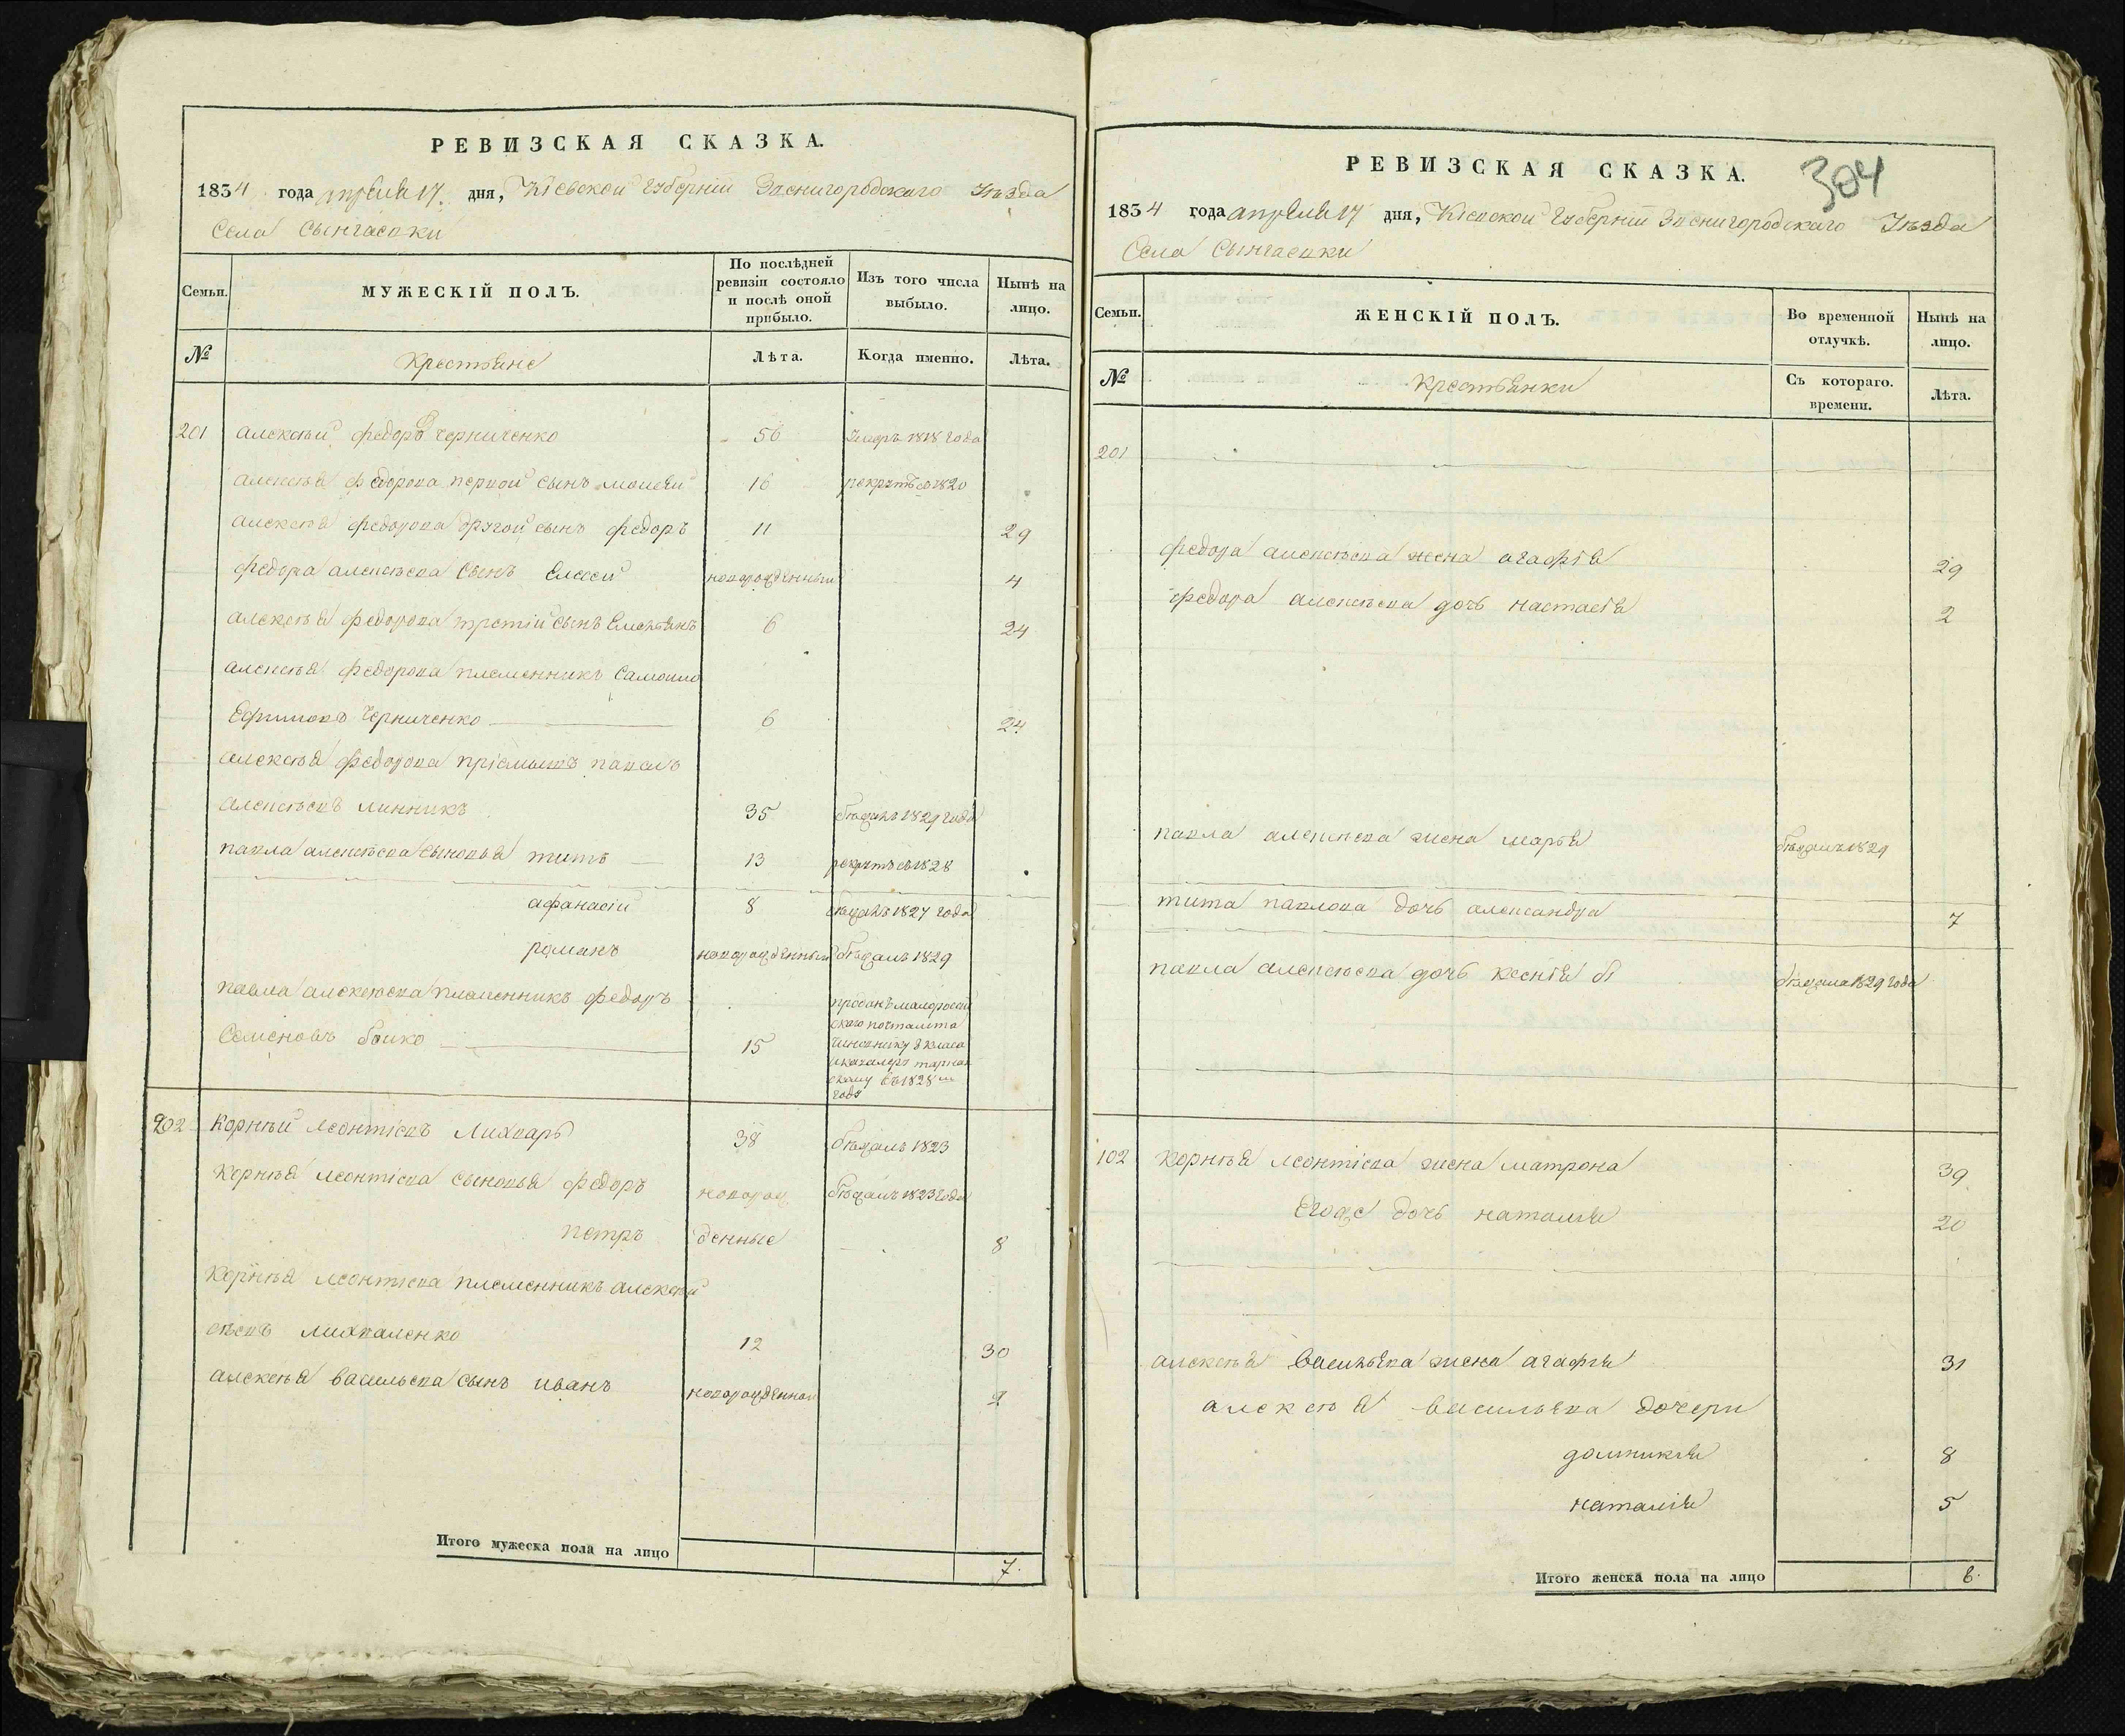 РЕВИЗСКАЯ СКАЗКА.
1834 года апреля 17. дня, Кіевской губерніи Звенигородского Уѣзда
Села Сынгаевки
Семьи.
МУЖЕСКІЙ ПОЛЪ.
По послѣдней ревизіи состояло и послѣ оной прибыло.
Изъ того числа выбыло.
Нынѣ на лицо.
№ Крестьяне Лѣта. Когда именно. Лѣта.
201 алексѣй федоровъ черниченко 56 Умеръ 1818 года
алексѣя федорова первой сынъ 16 рекрутъ въ 1820
алексѣя федорова другой сынъ федоръ 11 29
федора алексѣева сынъ Елисей новорожденный 4
алексѣя федорова третій сынъ Емельянъ 6 24
алексѣя федорова племенникъ Самойло
Ефимовъ Черниченко 6 24
алексѣя федорова пріемышъ павелъ
алексѣевъ линникъ 35 бѣжалъ 1829 года
павла алексѣева сыновья титъ 13 рекрутъ въ 1828
афанасій 8 бѣжалъ 1827 года
романъ новорожденный бѣжалъ 1829
павла алексѣева племенникъ федоръ
Семеновъ бойко 15
проданъ малоросій
скаго почтамта
чиновнику 8 класа
и кавалеру тарнав
скому въ 1828 м
годѣ
202 Корнѣй леонтіевъ Лихварь 38 бѣжалъ 1823
Корнѣя леонтіева сыновья федоръ новорож бѣжалъ 1823 года
петръ денные 8
Корнѣя леонтіева племенникъ алексѣй
евъ лихваленко 12 30
алексѣя васильева сынъ иванъ новорожденной 2
Итого мужеска пола на лицо 7.
304
РЕВИЗСКАЯ СКАЗКА.
1834 года апреля 17 дня, Кіевской губерніи Звенигородского Уѣзда
Села Сынгаевки
Семьи.
ЖЕНСКІЙ ПОЛЪ.
Во временной отлучкѣ.
Нынѣ на лицо.
№ Крестьянки Съ котораго. времени. Лѣта.
201
федора алексѣева жена агафія 29
федора алексѣева дочь настасія 2
павла алексѣева жена марья бѣжалъ 1829
тита павлова дочь александра 7
павла алексѣева дочь ксенія бѣжала 1829 года
102 Корнѣя леонтіева жена матрона 39
Егоже дочь наталія 20
алексѣя васильева жена агафія 31
алексѣя васильева дочери
домникія 8
наталія 5
Итого женска пола на лицо 8.